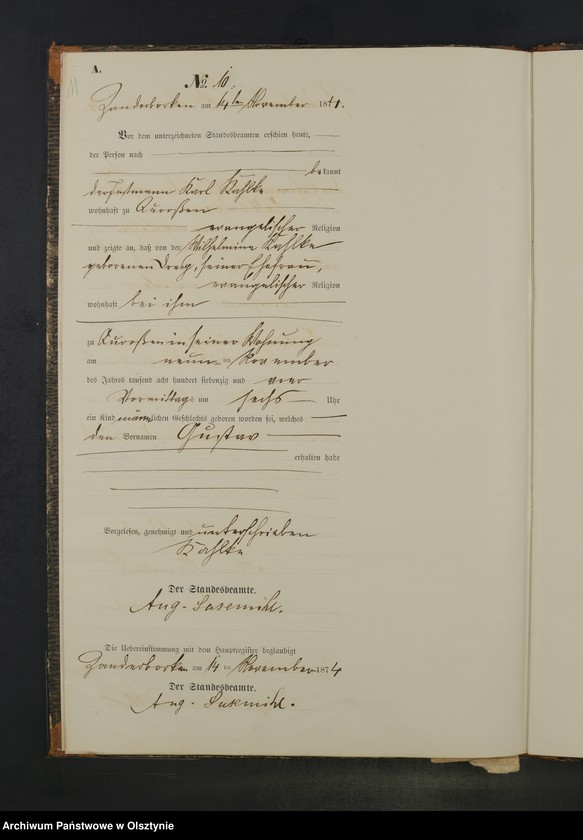 A.
No. 10.
Zanderborken am 14ten November 1874.
Vor dem unterzeichneten Standesbeamten erschien heute,
der Person nach
bekannt
der Instmann Karl Kahlke
wohnhaft zu
evangelischer Religion
und zeigte an, daß von der Wilhelmine Kahlke
geborenen seiner Ehefrau,
evangelischer Religion
wohnhaft bei ihm
zu in seiner Wohnung
am neun ten November
des Jahres tausend acht hundert siebenzig und vier
Vormittags um sechs Uhr
ein Kind männlichen Geschlechts geboren worden sei, welches
den Vornamen Gustav
erhalten habe
Vorgelesen, genehmigt und unterschrieben
Kahlke
Der Standesbeamte.
Aug. Sasemihl.
Die Uebereinstimmung mit dem Hauptregister beglaubigt
Zanderborken am 14 ten November 1874
Der Standesbeamte.
Aug. Sasemihl.
Archiwum Państwowe w Olsztynie